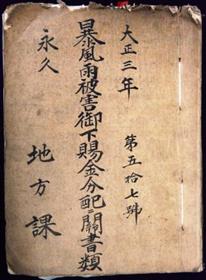 大正三年
第五拾七號
暴風雨被害御下賜金分配ニ關書類
永久
地方課